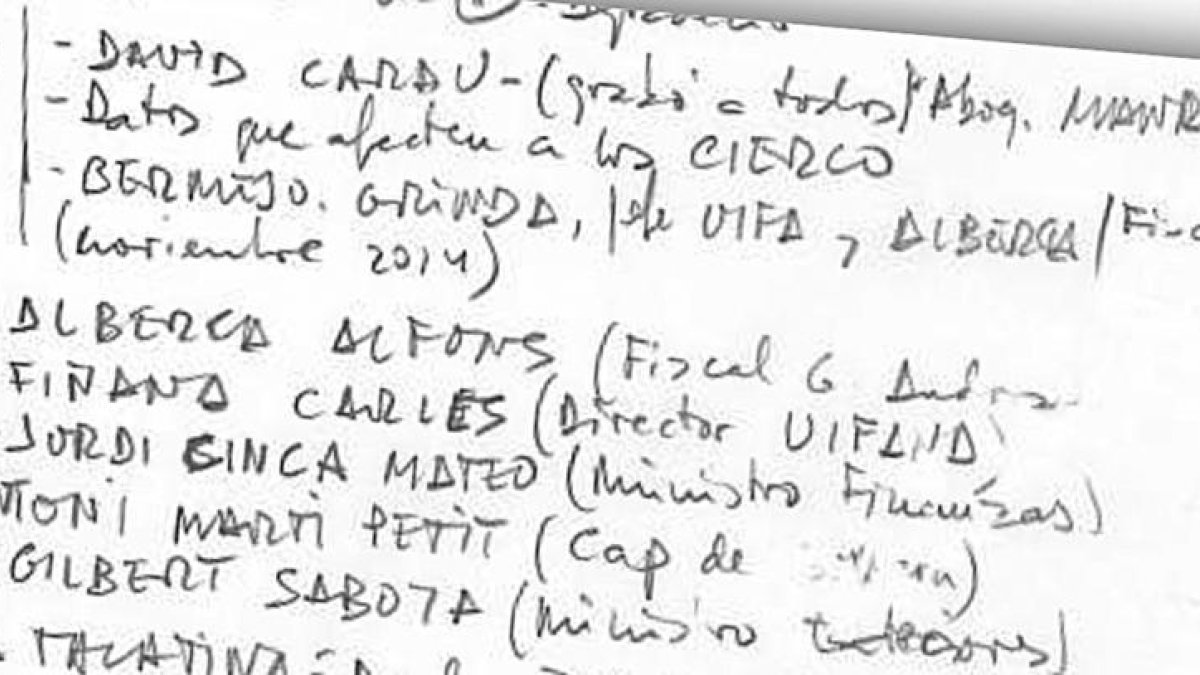 - DAVID CARDU - (grabó a todos) Abog.
- Datos que afecten a los CIERCO
- BERMEJO. GRINDA, Jefe UIFA, ALBERCA /
(noviembre 2014)
ALBERCA ALFONS (Fiscal G. Andorra
FIÑANA CARLES (Director UIFAND)
JORDI CINCA MATEO (Ministro Finanzas)
TONI MARTI PETIT (Cap de
GILBERT SABOYA (Ministro Exteriores)